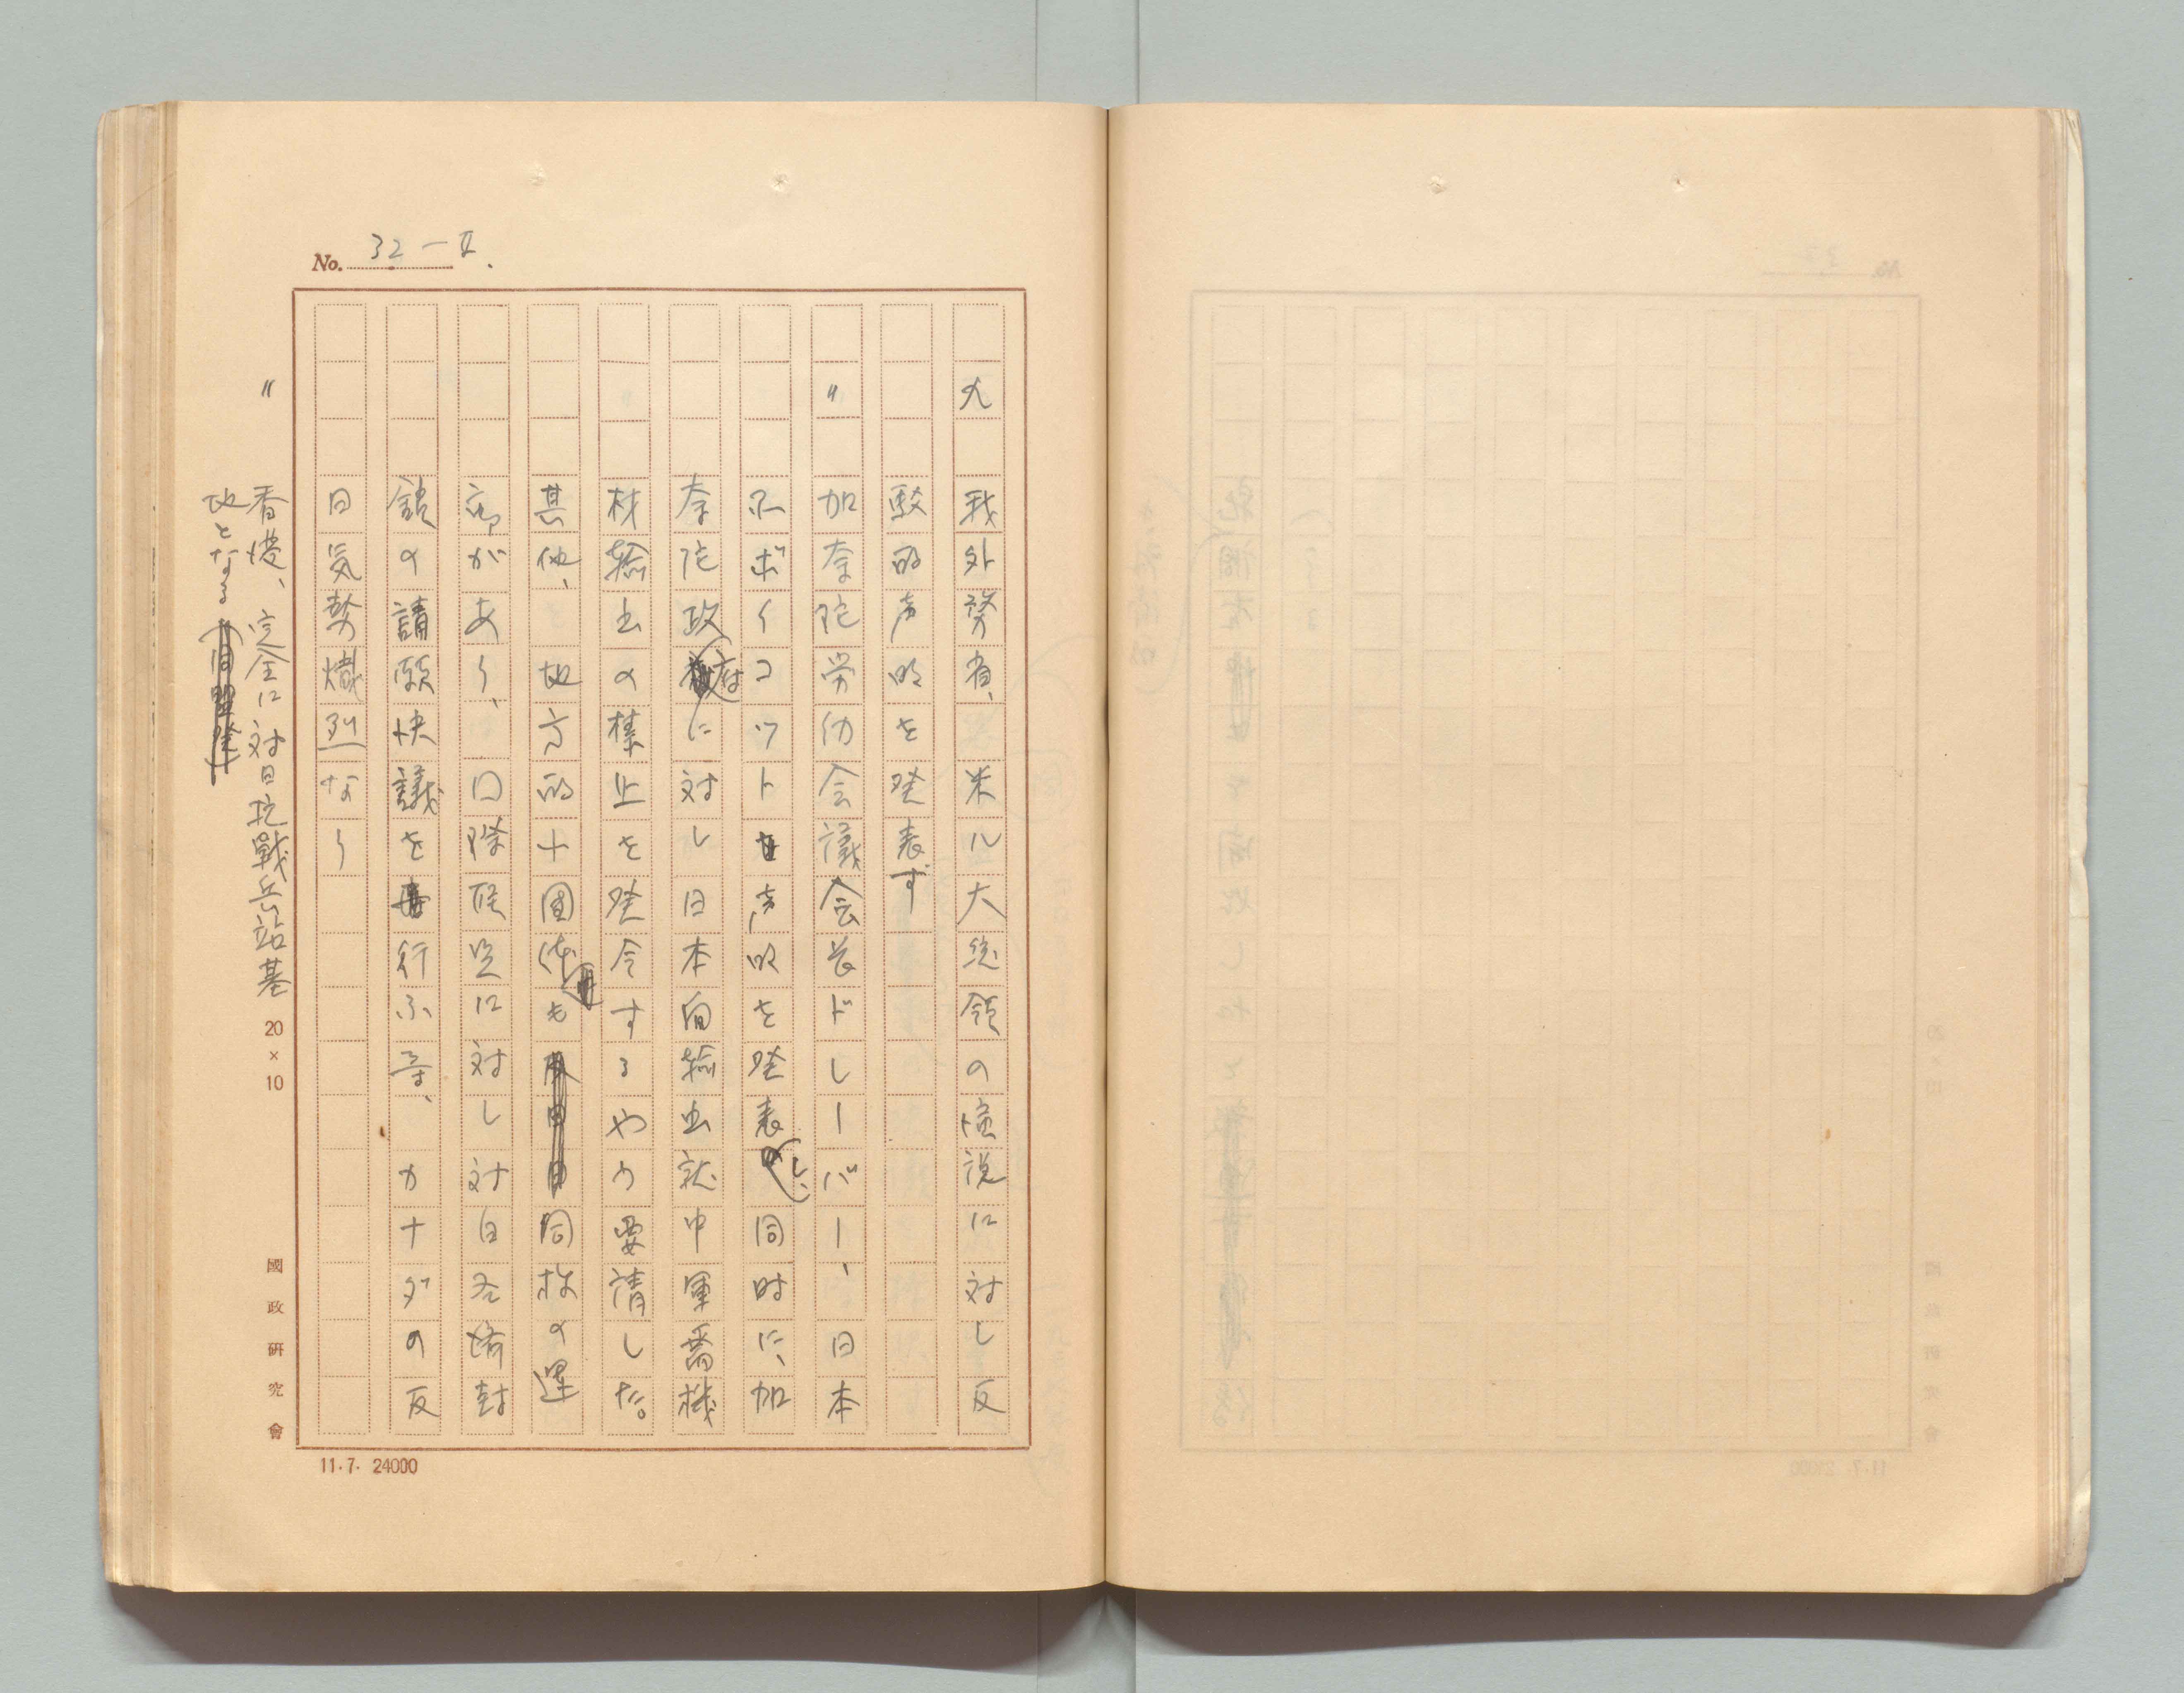 No. 32-II.
九 我外務省、米ル大統領の演説に対し反
駁的声明を発表す
〃 加奈陀労仂会議会長ドレーバー、日本
品ボイコット声明を発表し、同時に、加
奈陀政府に対し日本向輸出就中軍需機
材輸出の禁止を発令するやう要請した。
其他、地方的十団体も同様の運
動があり、国際聯盟に対し対日経済封
鎖の請願決議を行ふ等、カナダの反
日気勢熾烈なり
〃 香港、完全に対日抗戰兵站基
地となる
20×10
國政研究會
11.7. 24000